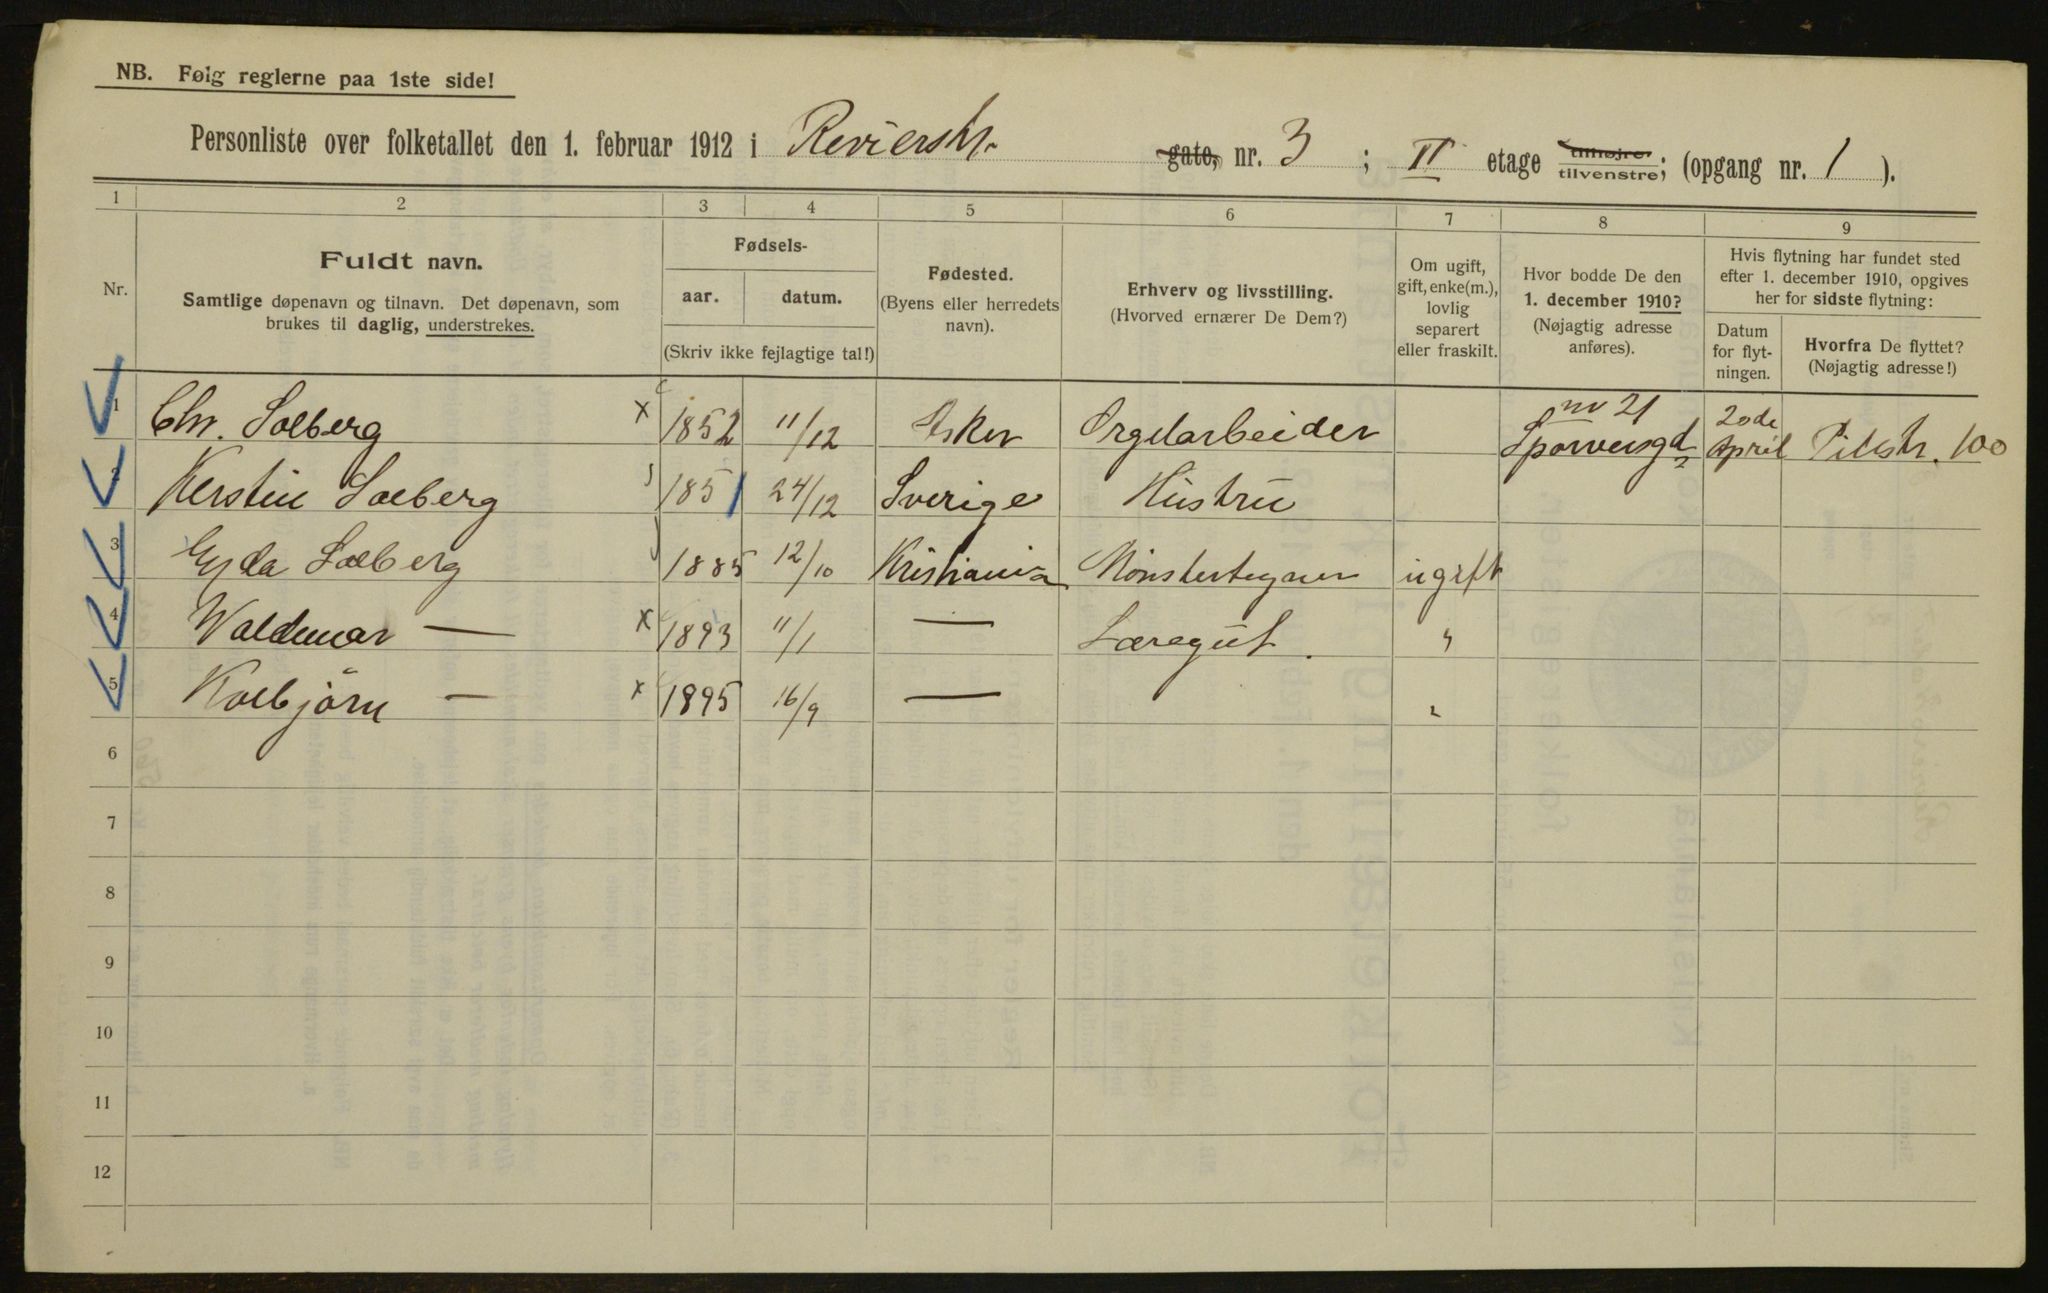 NB. Følg reglerne paa 1ste side!
Personliste over folketallet den 1. februar 1912 i Revierstr. gate, nr. 3 ; II etage tilhøjre tilvenstre; (opgang nr. 1 ).
1 2 3 4 5 6 7 8 9
Nr.
Fuldt navn.
Samtlige døpenavn og tilnavn. Det døpenavn, som
brukes til daglig, understrekes.
Fødsels-
aar. datum.
(Skriv ikke fejlagtige tal!)
Fødested.
(Byens eller herredets
navn).
Erhverv og livsstilling.
(Hvorved ernærer De Dem?)
Om ugift,
gift, enke(m.),
lovlig
separert
eller fraskilt.
Hvor bodde De den
1. december 1910?
(Nøjagtig adresse
anføres).
Hvis flytning har fundet sted
efter 1. december 1910, opgives
her for sidste flytning:
Datum
for flyt-
ningen.
Hvorfra De flyttet?
(Nøjagtig adresse!)
1 Chr. Solberg x 1852 11/12 Asker Orgelarbeider Sporveisgd nr 21 20de April Pilestr. 100
2 Kerstin Solberg 1851 24/12 Sverige Hustru
3 Gyda Solberg 1885 12/10 Kristiania Mönstertegner ugift
4 Waldemar — x 1893 11/1 — Læregut. "
5 Kolbjörn — x 1895 16/9 — "
6
7
8
9
10
11
12